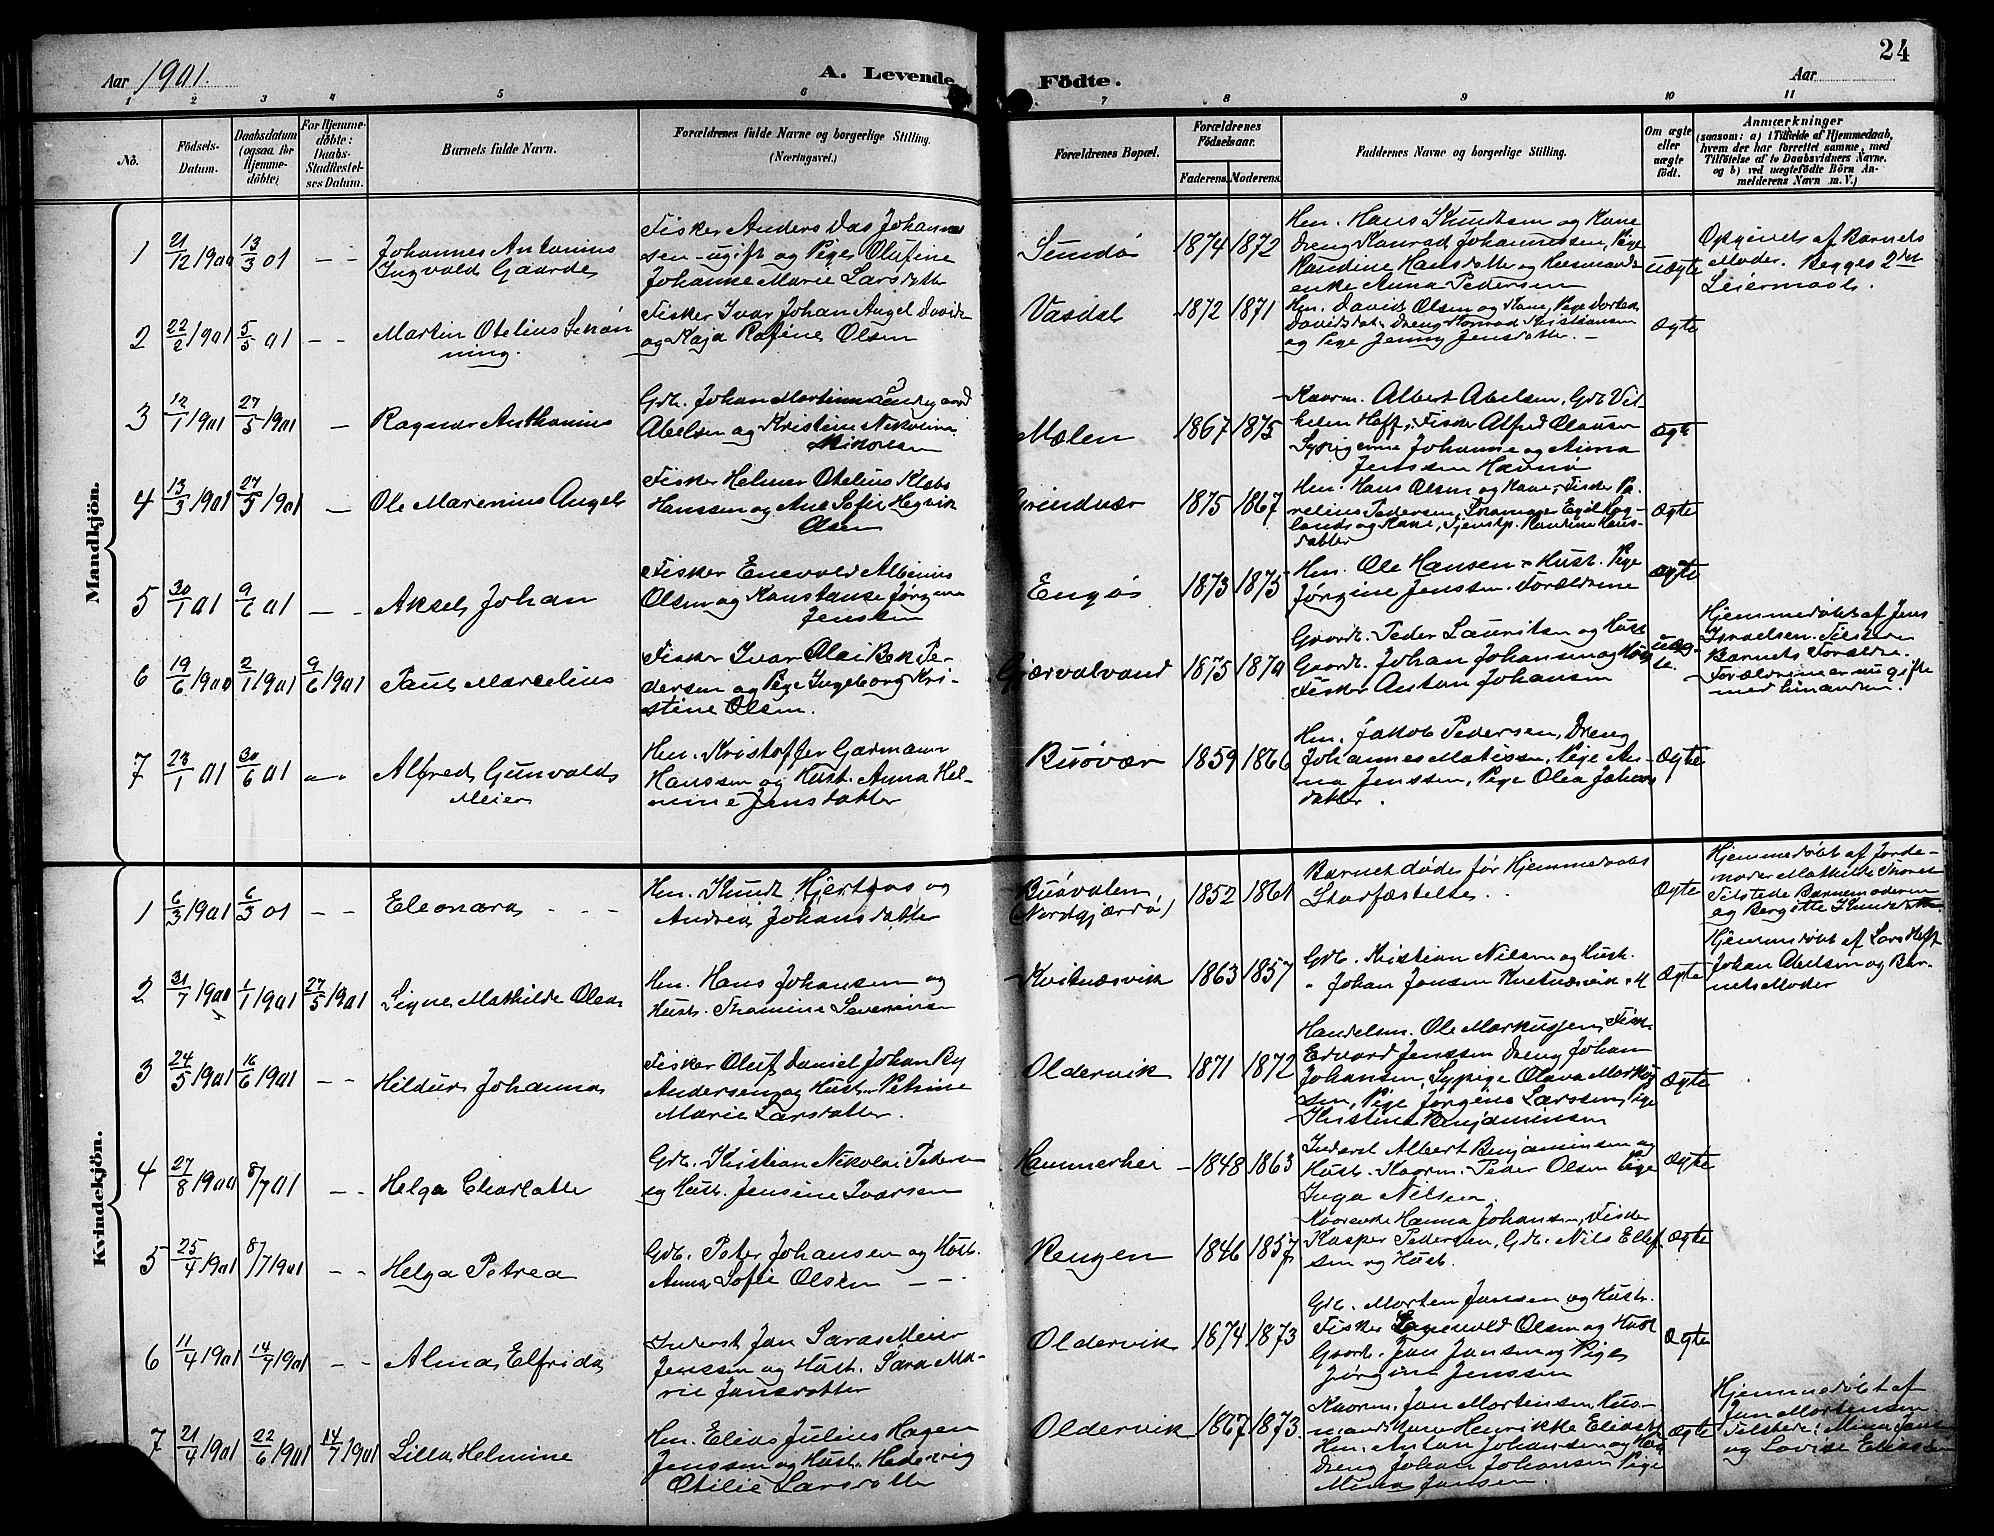 24
Aar 1901.
A. Levende Födte.
Aar
1 2 3 4 5 6 7 8 9 10 11
No.
Födsels-Datum.
Daabsdatum (ogsaa for Hjemme-döbte)
For Hjemme-döbte: Daabs-Stadfæstel-ses Datum.
Barnets fulde Navn.
Forældrenes fulde Navne og borgerlige Stilling.
(Næringsvei.)
Forældrenes Bopæl.
Forældrenes Födselsaar.
Faderens. Moderens.
Faddernes Navne og borgerlige Stilling.
Om ægte eller uægte födt.
Anmærkninger
(saasom: a) i Tilfælde af Hjemmedaab, hvem der har forrettet samme, med Tilföielse af to Daabsvidners Navne. og b) ved uægtefödte Börn An-melderens Navn m. V.)
Mandkjön.
1 21/12 1900 13/3 01 - -
Johannes Antonius
Ingvald Gaarde
Fisker Anders Das Johannes
sen - ugift og Pige Olufine
Johanne Marie Larsdatter
Sundø 1874 1872
Hm. Hans Knudtsen og Kone
Dreng Konrad Johannessen, Pige
Randine Hansdatter og
enke Anna Pedersen
uægte
Opgivet af Barnets
Moder. Begges 2det
Leiermaal.
2 22/2 1901 5/5 01 - -
Martin Otelius Schøn
ning.
Fisker Ivar Johan Angel David
og Kaja Rafine Olsen
Vasdal 1872 1871
Hm. David Olsen og Kone, Pige Dorthea
Davidsdat. Dreng Konrad Kristiansen
og Pige Jenny Jensdatter. -
Ægte
3 12/1 1901 27/5 1901 -
Ragnar Anthonius
Gdb. Johan Martinus Lundegaard
Abelsen og Kristine Nikoline
Nikolsen
Mælen 1867 1875
Kaarm. Albert Abelsen, Gdb. Vil-
helm Hoff, Fisker Alfred Olausen
Sypigerne Johanne og Anna
Jenssen Havnø
Ægte
4 13/3 1901 27/5 1901 -
Ole Marenius Angel
Fisker Helmer Otelius Klabo
Hanssen og Ane Sofie Hegvik
Olsen
Grindvær 1875 1867
Hm. Hans Olsen og Kone, Fisker Pa-
relius Pedersen, Skomager Egil Rog-
land og Kone, Tjenstp. Randine Hans-
datter
Ægte
5 30/1 01 9/6 01 - -
Aksel Johan
Fisker Enevold Albinius
Olsen og Konstanse Jørgine
Jensten
Engø 1873 1875
Hm. Ole Hansen - Hust. Pige
Jørgine Jenssen. Forældrene
Ægte
6 19/6 1900 2/1 1901 9/6 1901
Paul Marselius
Fisker Ivar Olai Bek Pe-
dersen og Pige Ingeborg Kri-
stine Olsen.
Gjærvalvand 1875 1870
Gaardb. Peder Lauritsen og Hust
Gaardb. Johan Johansen og Hust
Fisker Anton Johansen
uæg-
te.
Hjemmedøbt af Jens
Israelsen. Tilstede
Barnets Forældre.
Forældrene er nu gifte
med hinanden.
7 23/1 01 30/6 01 - -
Alfred Gunvald
Meier
Hm. Kristoffer Garmann
Hanssen og Hust. Anna Hel-
mine Jensdatter
Buøvær 1859 1866
Hm. Jakob Pedersen, Dreng
Johannes Matissen, Pige An-
na Jenssen, Pige Olea Johans
datter.
Ægte
Kvindekjön.
1 6/3 1901 6/3 01 - -
Eleonora - - -
Hm. Knudt Hjertgas og
Andrea Johansdatter
Buøvalen
(Nordgjærdø) 1852 1861
Barnet døde før Hjemmedaabs
Stadfæstelse.
Ægte
Hjemmedøbt af Jorde-
moder Mathilde Thorsen
Tilstede Barnemoderen
og Bergitte Knudsdatter
2 31/7 1900 1/1 1901 27/5 1901
Signe Mathilde Olea
Hm. Hans Johansen og
Hust. Thomine Severinsen
Kvitnæsvik 1863 1857
Gdb. Kristian Nilsen og Hust.
" Johan Jansen Kvitnæsvik - M
Ægte
Hjemmedøbt af Lars Heft
Johan Abelsen og Bar-
nets Moder
3 24/5 1901 16/6 1901 - -
Hildur Johanna
Fisker Oluf Daniel Johan Ry
Andersen og Hust. Petrine
Marie Larsdatter.
Oldervik 1871 1872
Handelsm. Ole Markussen, Fisk.
Edvard Jenssen Dreng Johan
Johansen, Sypige Olava Markus-
sen, Pige Jørgine Larssen, Pige
Kristine Benjaminsen
Ægte
4 27/8 1900 8/7 01 - -
Helga Charlotte
Gdb. Kristian Nikolai Pedersen
og Hust. Jensine Ivarsen
Hammerhei - 1848 1863
Inderst Albert Benjaminsen og
Hust. Kaarm. Peder Olsen Pige
Inga Nilsen.
Ægte
5 25/4 1901 8/7 1901 - -
Helga Petrea
Gdb. Peter Johansen og Hust.
Anna Sofie Olsen - -
Rengen 1846 1857
Kaarenke Hanna Johansen, Fisker
Kasper Pedersen, Gdb. Nils Ellef-
sen og Hust.
Ægte
6 11/4 1901 14/7 1901 - -
Alma Elfrida
Inderst Jan Saras Meier
Jenssen og Hust. Sara Ma-
rie Jansdatter
Oldervik 1874 1873
Gdb. Morten Jansen og Hust.
Fisker Enevold Olsen og Hust
Gaardb. Jan Jansen og Pige
Jørgine Jenssen
Ægte
7 21/4 1901 22/6 1901 14/7 1901
Lilla Helmine
Hm. Elias Julius Hagen
Jenssen og Hust. Hedevig
Otilie Larsdatter
Oldervik 1867 1873.
Kaarm. Jan Mortensen, Hus-
mandskone Henrikke Eliassen
Hm. Anton Johansen og Hust
Dreng Johan Johansen Pige
Mina Jansen.
Ægte
Hjemmedøbt af
Jan Mortensen.
Tilstede: Mina Jansen
og Lovise Eliassen